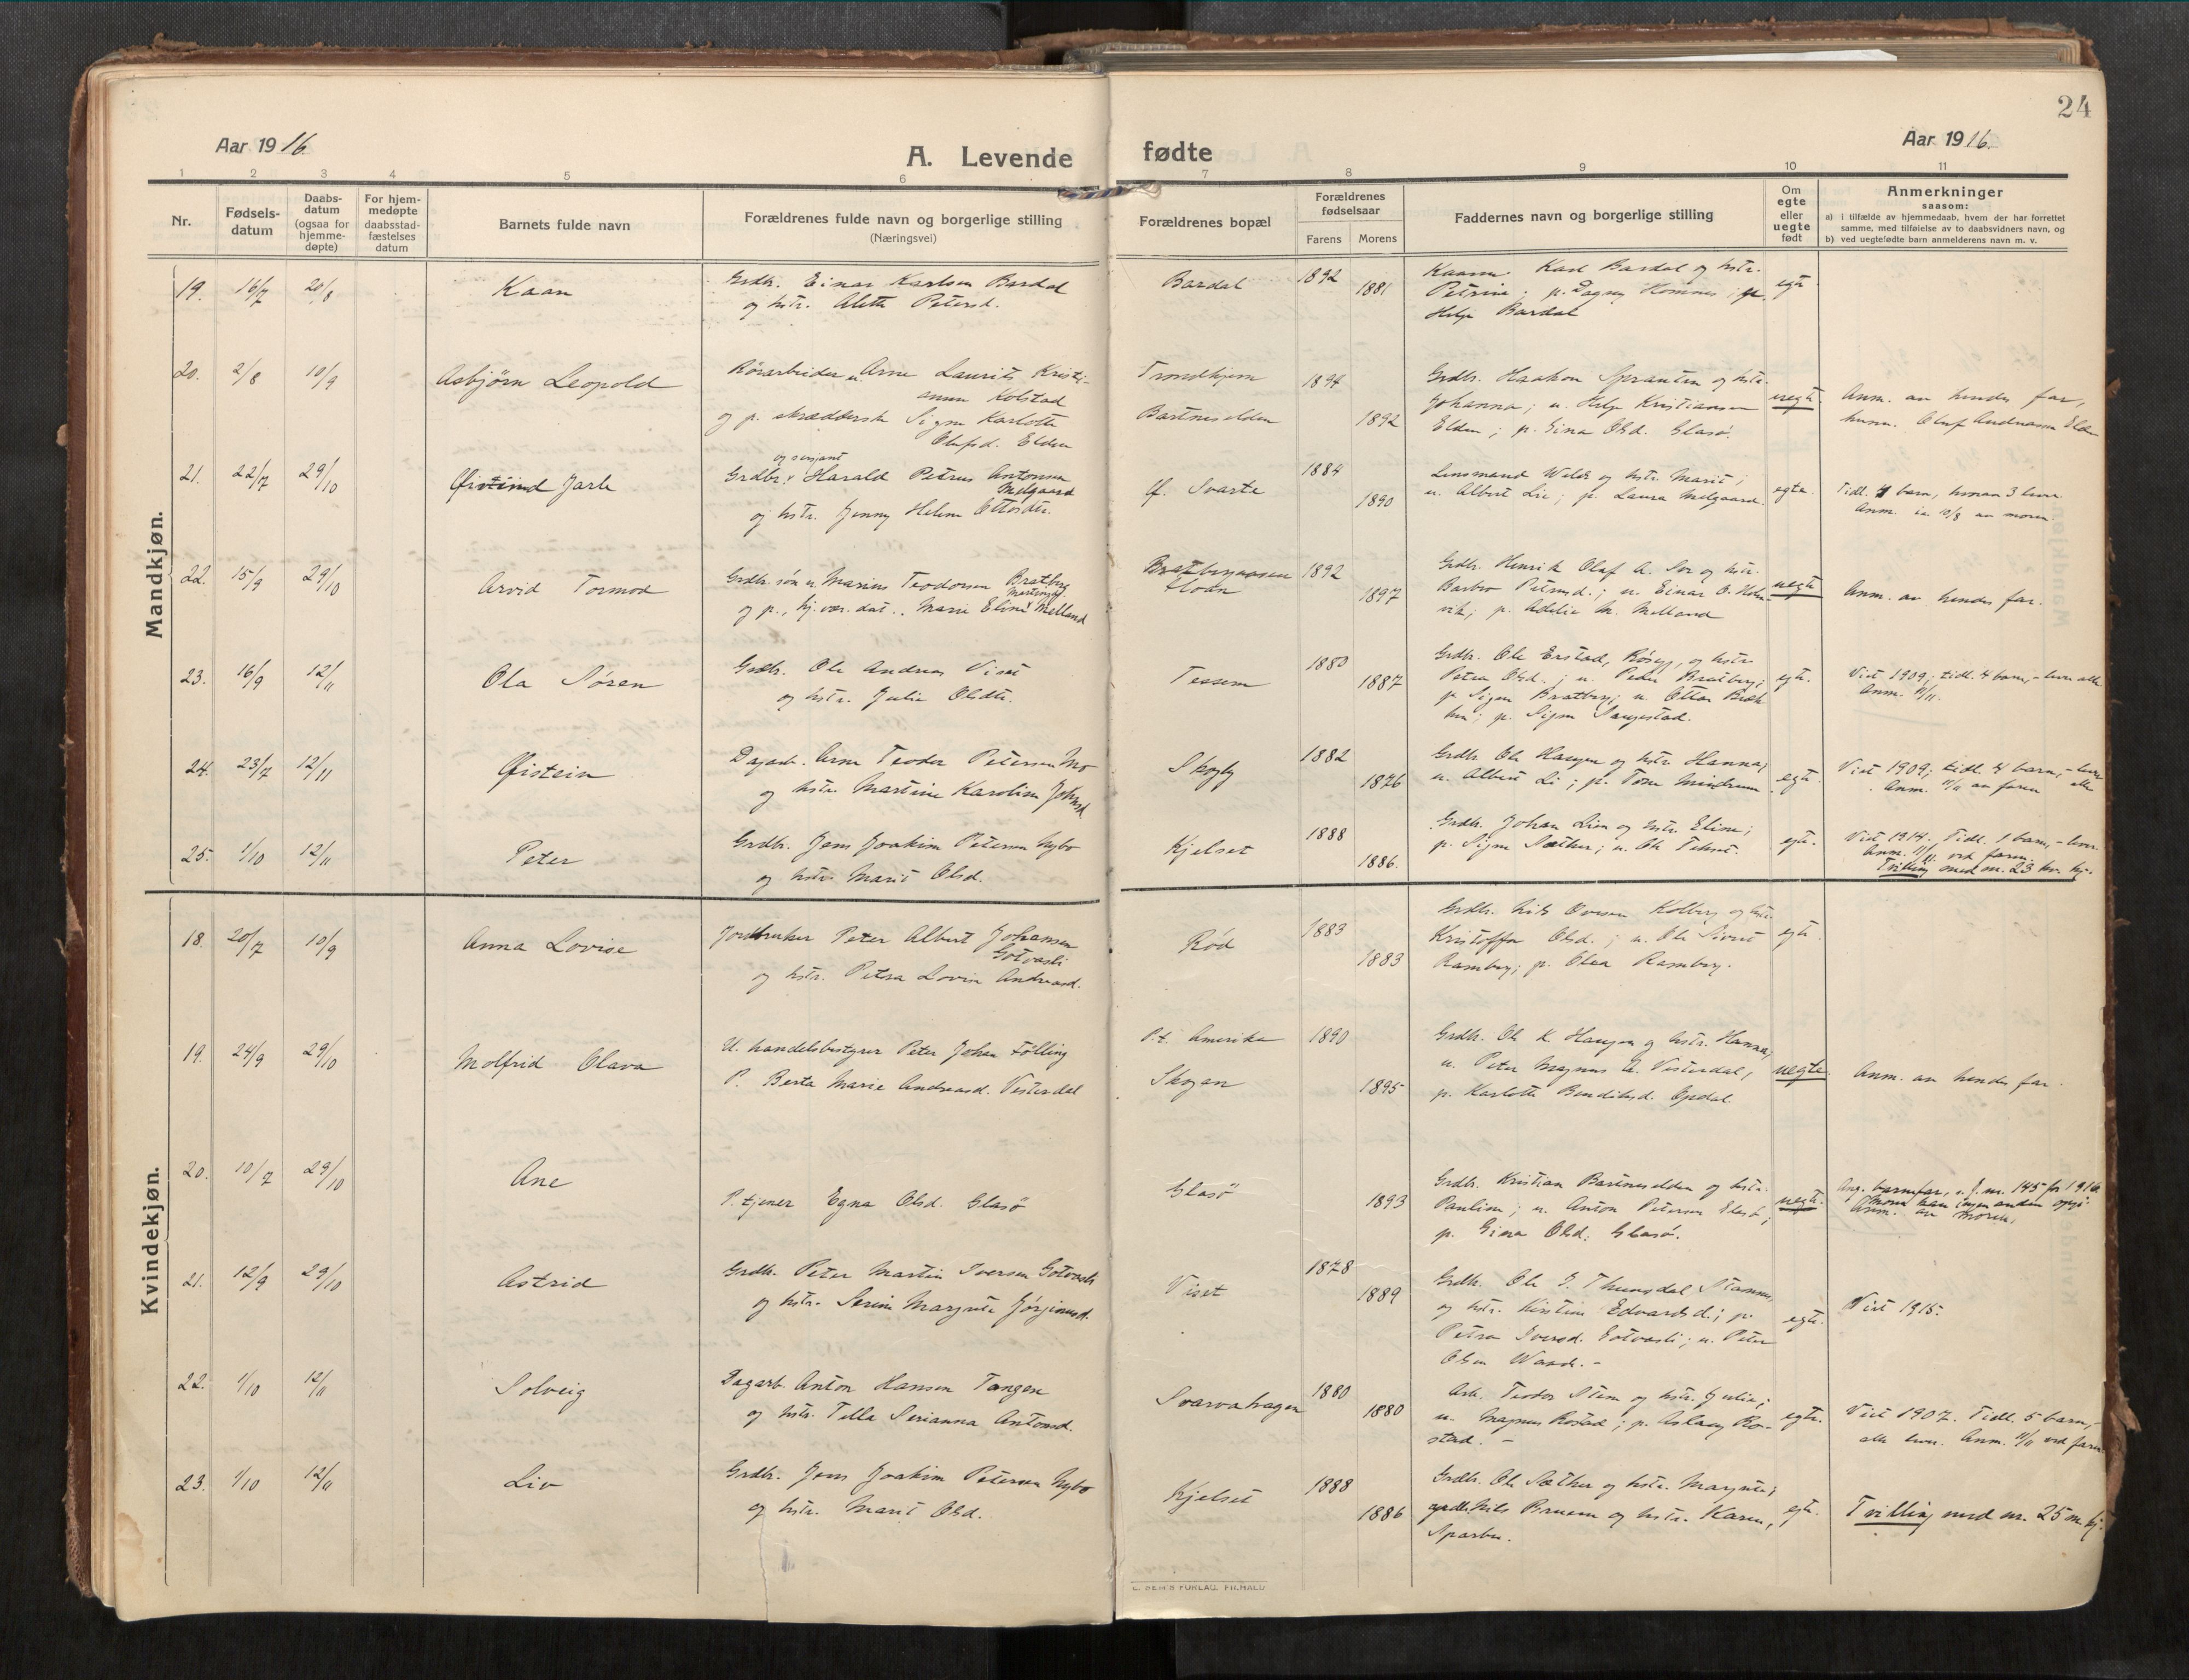 24
Aar 1916.
A. Levende
fødte
Aar 1916.
1 2 3 4 5 6 7 8 9 10 11
Nr.
Fødsels-
datum
Daabs-
datum
(ogsaa for
hjemme-
døpte)
For hjem-
medøpte
daabsstad-
fæstelses
datum
Barnets fulde navn
Forældrenes fulde navn og borgerlige stilling
(Næringsvei)
Forældrenes bopæl
Forældrenes
fødselsaar
Farens Morens
Faddernes navn og borgerlige stilling
Om
egte
eller
uegte
født
Anmerkninger
saasom:
a) i tilfælde av hjemmedaab, hvem der har forrettet
samme, med tilføielse av to daabsvidners navn, og
b) ved uegtefødte barn anmelderens navn m. v.
Mandkjøn.
19. 16/7 20/8 Kaan
Grdbr. Einar Karlsen Bardal
og hstr. Petersd.
Bardal 1892 1881
Karl Bardal og hstr.
Petrine; p. Dagny
Helge Bardal
egte
20. 2/8 10/9 Asbjørn Leopold
Rørarbeider u. Arne Laurits Kristi-
Kolstad
og p. Signe Karlotte
Olufsd. Elden
Trondhjem
Bartneselden
1894 1892
Grdbr. Haakon og hstr.
Johanna; u. Helge Kristiansen
Elden; p. Gina Olsd. Glasø.
uegte.
Anm. av hendes far,
husm. Oluf Andreasen Elden
21. 22/7 29/10 Øistind Jarle
og sersjant
Grdbr. Harald Petrus Antonsen
Melgaard
og hstr. Jenny Helene Ottosdtr.
lf. Svarte 1884 1890
Lensmand og hstr. Marit;
u. Albert Lie; p. Laura Melgaard.
egte.
Tidl. 4 barn, hvorav 3 lever
Anm. 10/8 av moren.
22. 15/9 29/10 Arvid Tormod
Grdbr.søn u. Marius Teodorsen Bratberg
Martinsd.
og p., hj.vær. dat.. Marie Eline Melland
Bratbergaasen
1892 1897
Grdbr. Henrik Olaf A. og hstr.
Barbro Petersd.; u. Einar O. Holm-
vik; p. M. Melland
uegte
Anm. av hendes far.
23. 16/9 12/11 Ola Søren
Grdbr. Ole Andreas Viset
og hstr. Julie Olsdtr.
Tessem 1880 1887
Grdbr. Ole Erstad, og hstr.
Petra Olsd.; u. Peder Bratberg;
p. Signe Bratberg; u. Ottar
p. Signe
egte.
Viet 1909; tidl. 4 barn, - lever alle
Anm. 11/11.
24. 23/7 12/11 Øistein
Dagarb. Arne Teodor Petersen Mo
og hstr. Martine Karoline Johnsd.
Skogly 1882 1876
Grdbr. Ole Haugen og hstr. Hanna;
u. Albert Li; p. Tone Mindrum
egte.
Viet 1909; tidl. 4 barn, - lever
alle
Anm. 11/11 av faren
25. 1/10 12/11 Peter
Grdbr. Jens Joakim Petersen Nybo
og hstr. Marit Olsd.
Kjelset 1888 1886.
Grdbr. Johan Lien og hstr. Eline;
p. Signe Sæther; u. Ole
egte.
Viet 1914. Tidl. 1 barn, - lever
Anm. 11/11 ved faren.
Tvilling med nr. 23 kv. kj.
Kvindekjøn.
18. 20/7 10/9 Anna Lovise
Jordbruker Peter Albert Johansen
Gotvasli
og hstr. Petra Lovise Andreasd.
Rød 1883 1883
Grdbr. Nils Oversen Kolberg og hstr.
Olsd.; u. Ole Sivert
Ramberg; p. Olea Ramberg.
egte.
19. 24/9 29/10 Molfrid Olava
U. handelsbestyrer Peter Johan Følling
P. Berta Marie Andreasd. Vesterdal
P.t. Amerika
Skogan
1890 1895
Grdbr. Ole K. Haugen og hstr. Hanna;
u. Peter Magnus A. Vesterdal,
p. Karlotte Bendiksd. Opdal.
uegte.
Anm. av hendes far.
20. 10/7 29/10 Ane
P. tjener Egna Olsd. Glasø
Glasø 1893
Grdbr. Kristian Bartneselden og hstr.
Pauline; u. Anton Petersen Glasø;
p. Gina Olsd. Glasø.
uegte.
Ang. barnefar, u. J. nr. 145 for 1916
Moren kan ingen anden opgi.
Anm. av moren.
21. 12/9 29/10 Astrid
Grdbr. Peter Martin Iversen Gotvasli
og hstr. Serine Margrete Jørginusd.
Viset 1878 1889
Grdbr. Ole J. Thunsdal Stamnes
og hstr. Kirstine Edvardsd.; p.
Petra Iversd. Gotvasli; u. Peter
Olsen Waade. -
egte.
Viet 1915.
22. 1/10 12/11 Solveig
Dagarb. Anton Hansen Tangen
og hstr. Tella Serianna Antonsd.
Svarvahagen 1880 1880
Arb. Teodor Stene og hstr. Julie;
u. Magnus Rostad; p. Aslaug Ro-
stad. -
egte.
Viet 1907. Tidl. 5 barn, -
alle lever. Anm. 11/11 ved faren
23. 1/10 12/11 Liv
Grdbr. Jens Joakim Petersen Nybo
og hstr. Marit Olsd.
Kjelset 1888 1886
Grdbr. Ole Sæther og hstr. Margrete;
grdbr. Nils Bruem og hstr. Karen,
Sparbu.
egte.
Tvilling med nr. 25 m. kj.